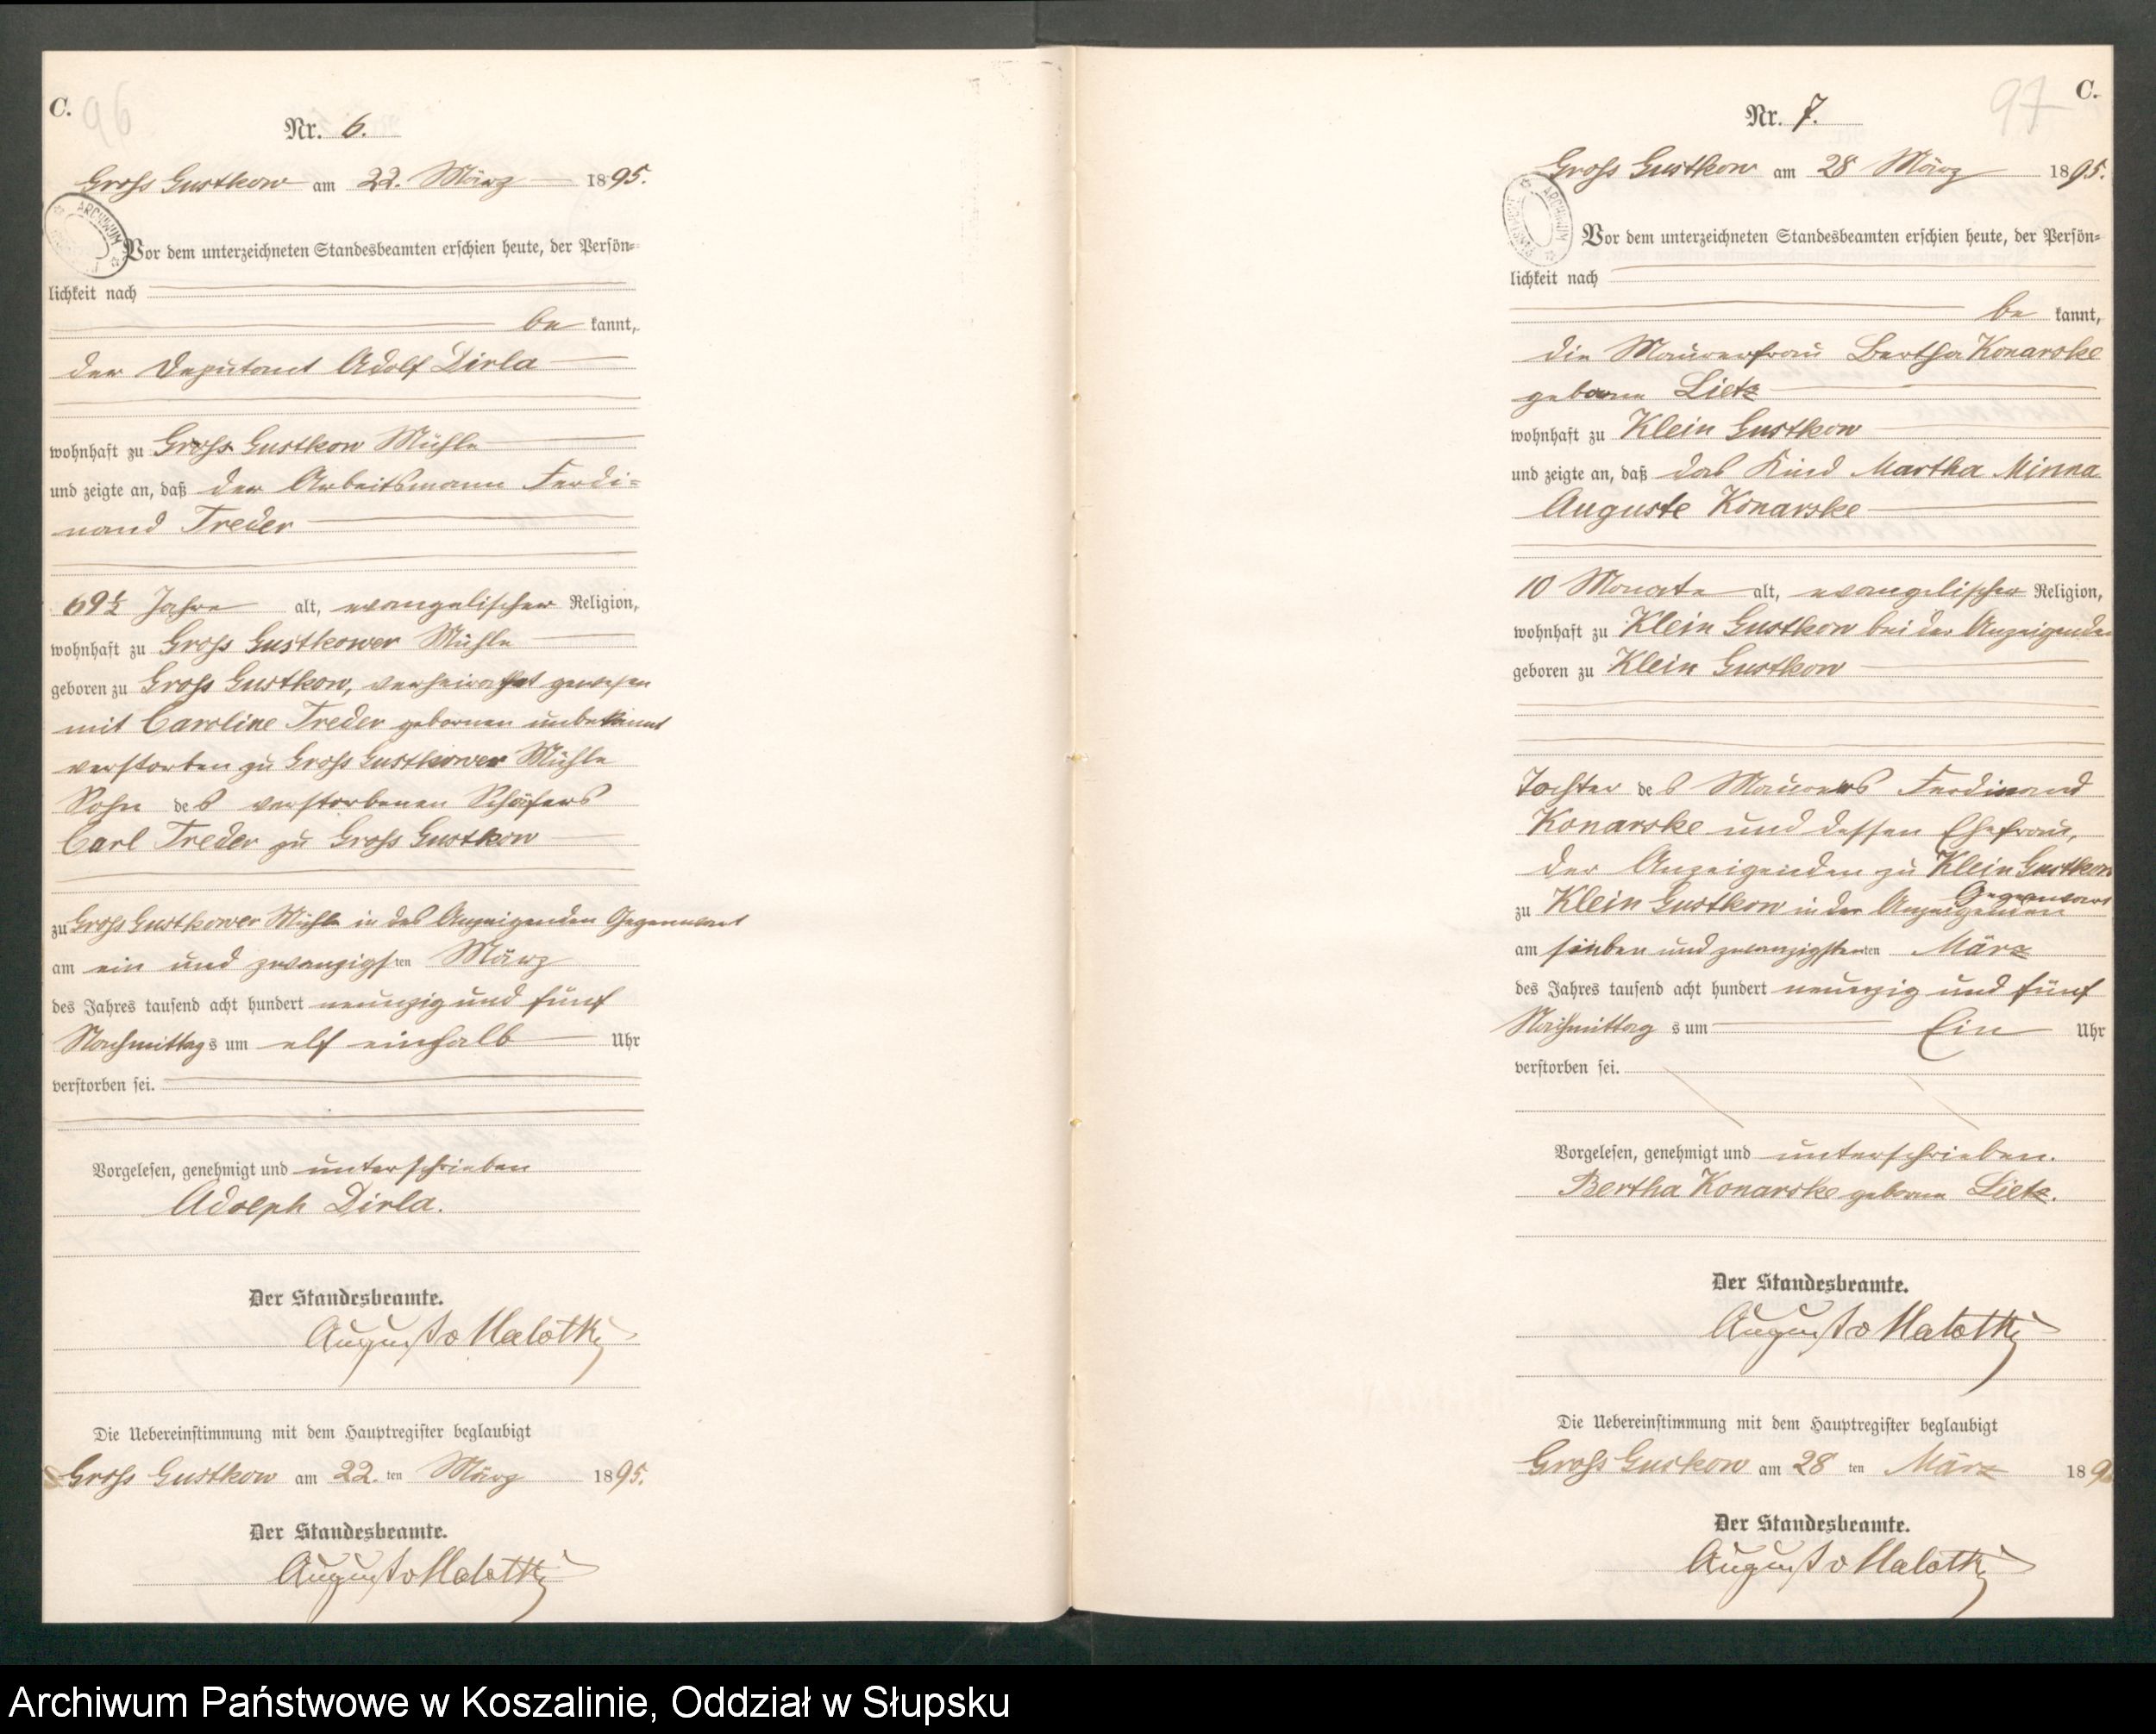 C. 96
Nr. 6.
Gross Gustkow am 22. März 1895.
ARCHIWUM
Vor dem unterzeichneten Standesbeamten erschien heute, der Persön-
lichkeit nach
be kannt,
der Deputant Adolf Dirla
wohnhaft zu Gross Gustkow Mühle
und zeigte an, daß der Arbeitsmann Ferdi-
nand Treder
69½ Jahre alt, evangelischer Religion,
wohnhaft zu Gross Gustkower Mühle
geboren zu Gross Gustkow, verheirathet gewesen
mit Caroline Treder gebornen unbekannt
verstorben zu Gross Gustkower Mühle
Sohn des verstorbenen Schäfers
Carl Treder zu Gross Gustkow
zu Gross Gustkower Mühle in des Anzeigenden Gegenwart
am ein und zwanzigsten März
des Jahres tausend acht hundert neunzig und fünf
Nachmittags um elf einhalb Uhr
verstorben sei.
Vorgelesen, genehmigt und unterschrieben
Adolph Dirla.
Der Standesbeamte.
August v Malottki
Die Uebereinstimmung mit dem Hauptregister beglaubigt
Gross Gustkow am 22. ten März 1895.
Der Standesbeamte.
August v Malottki
97 C.
Nr. 7.
Gross Gustkow am 28 März 1895.
ARCHIWUM
Vor dem unterzeichneten Standesbeamten erschien heute, der Persön-
lichkeit nach
be kannt,
die Maurerfrau Bertha Konarske
geborne Lietz
wohnhaft zu Klein Gustkow
und zeigte an, daß das Kind Martha Minna
Auguste Konarske
10 Monate alt, evangelischer Religion,
wohnhaft zu Klein Gustkow bei der Anzeigenden
geboren zu Klein Gustkow
Tochter des Maurers Ferdinand
Konarske und dessen Ehefrau,
der Anzeigenden zu Klein Gustkow
zu Klein Gustkow in der Anzeigenden Gegenwart
am sieben und zwanzigsten ten März
des Jahres tausend acht hundert neunzig und fünf
Nachmittag s um Ein Uhr
verstorben sei.
Vorgelesen, genehmigt und unterschrieben.
Bertha Konarske geborne Lietz.
Der Standesbeamte.
August v Malottki
Die Uebereinstimmung mit dem Hauptregister beglaubigt
Gross Guskow am 28 ten März 189
Der Standesbeamte.
August v Malottki
Archiwum Państwowe w Koszalinie, Oddział w Słupsku